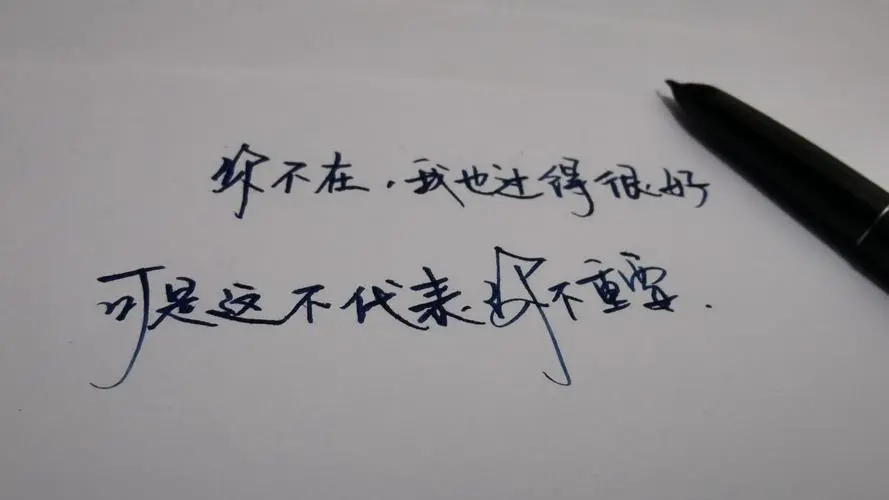 你不在,我也过得很好
可是这不代表你不重要.